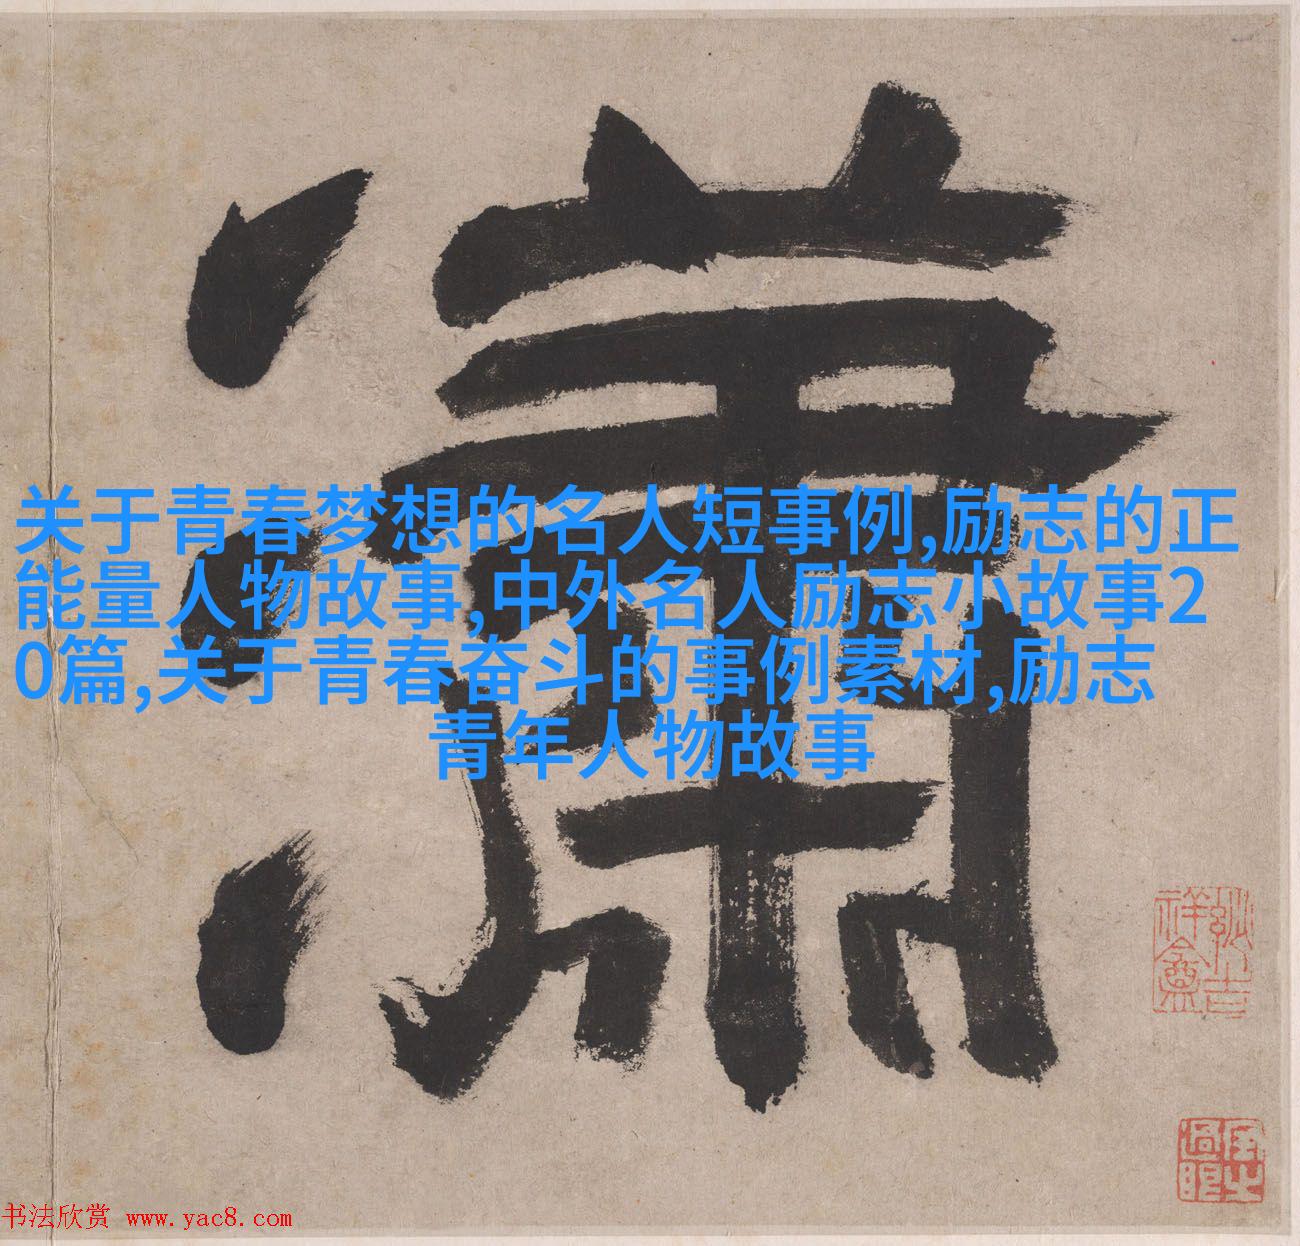 瀟
关于青春梦想的名人短事例,励志的正
能量人物故事,中外名人励志小故事2
0篇,关于青春奋斗的事例素材,励志
青年人物故事
书法欣赏 www.yac8.com